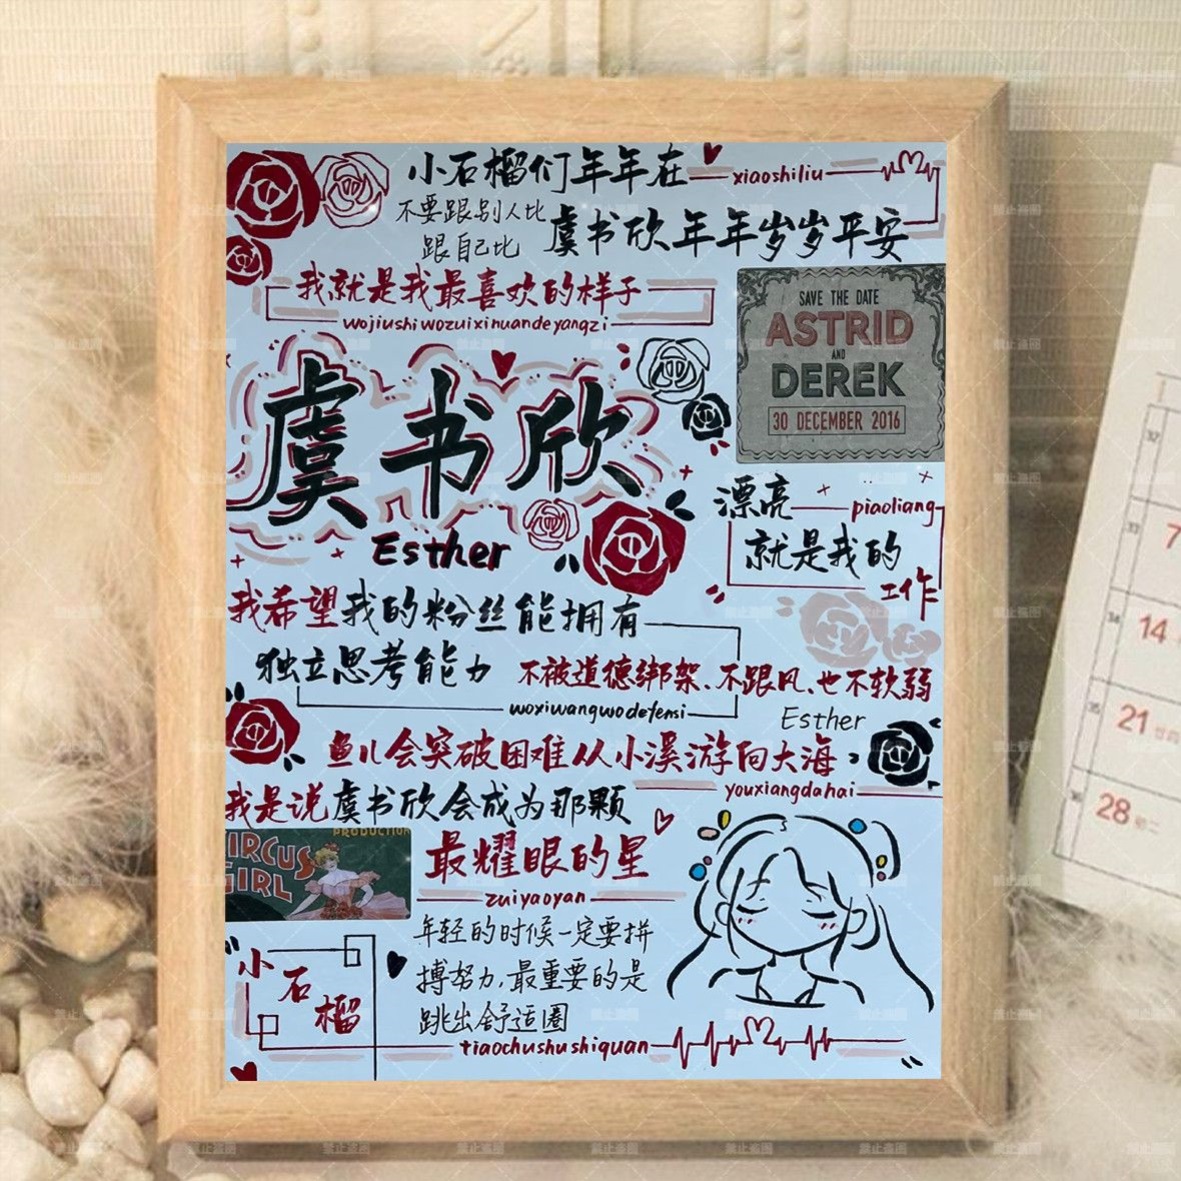 小石榴们年年在
xiaoshiliu
不要跟别人比
跟自己比
虞书欣年年岁岁平安
我就是我最喜欢的样子
wojiushiwozuixinuandeyangzi
SAVE THE DATE
ASTRID
AND
DEREK
30 DECEMBER 2016
虞书欣
Esther
漂亮
piaoliang
就是我的
工作
我希望我的粉丝能拥有
独立思考能力
不被道德绑架、不跟风、也不软弱
woxiwangwodefensi
Esther
鱼儿会突破困难从小溪游向大海
youxiangdahai
我是说虞书欣会成为那颗
PRODUCTION
IRCUS
GIRL
最耀眼的星
zuiyaoyan
年轻的时候一定要拼
搏努力,最重要的是
跳出舒适圈
tiaochushushiquan
小石榴
32
33
7
34
14
35
21
36
28
初二
禁止盗图